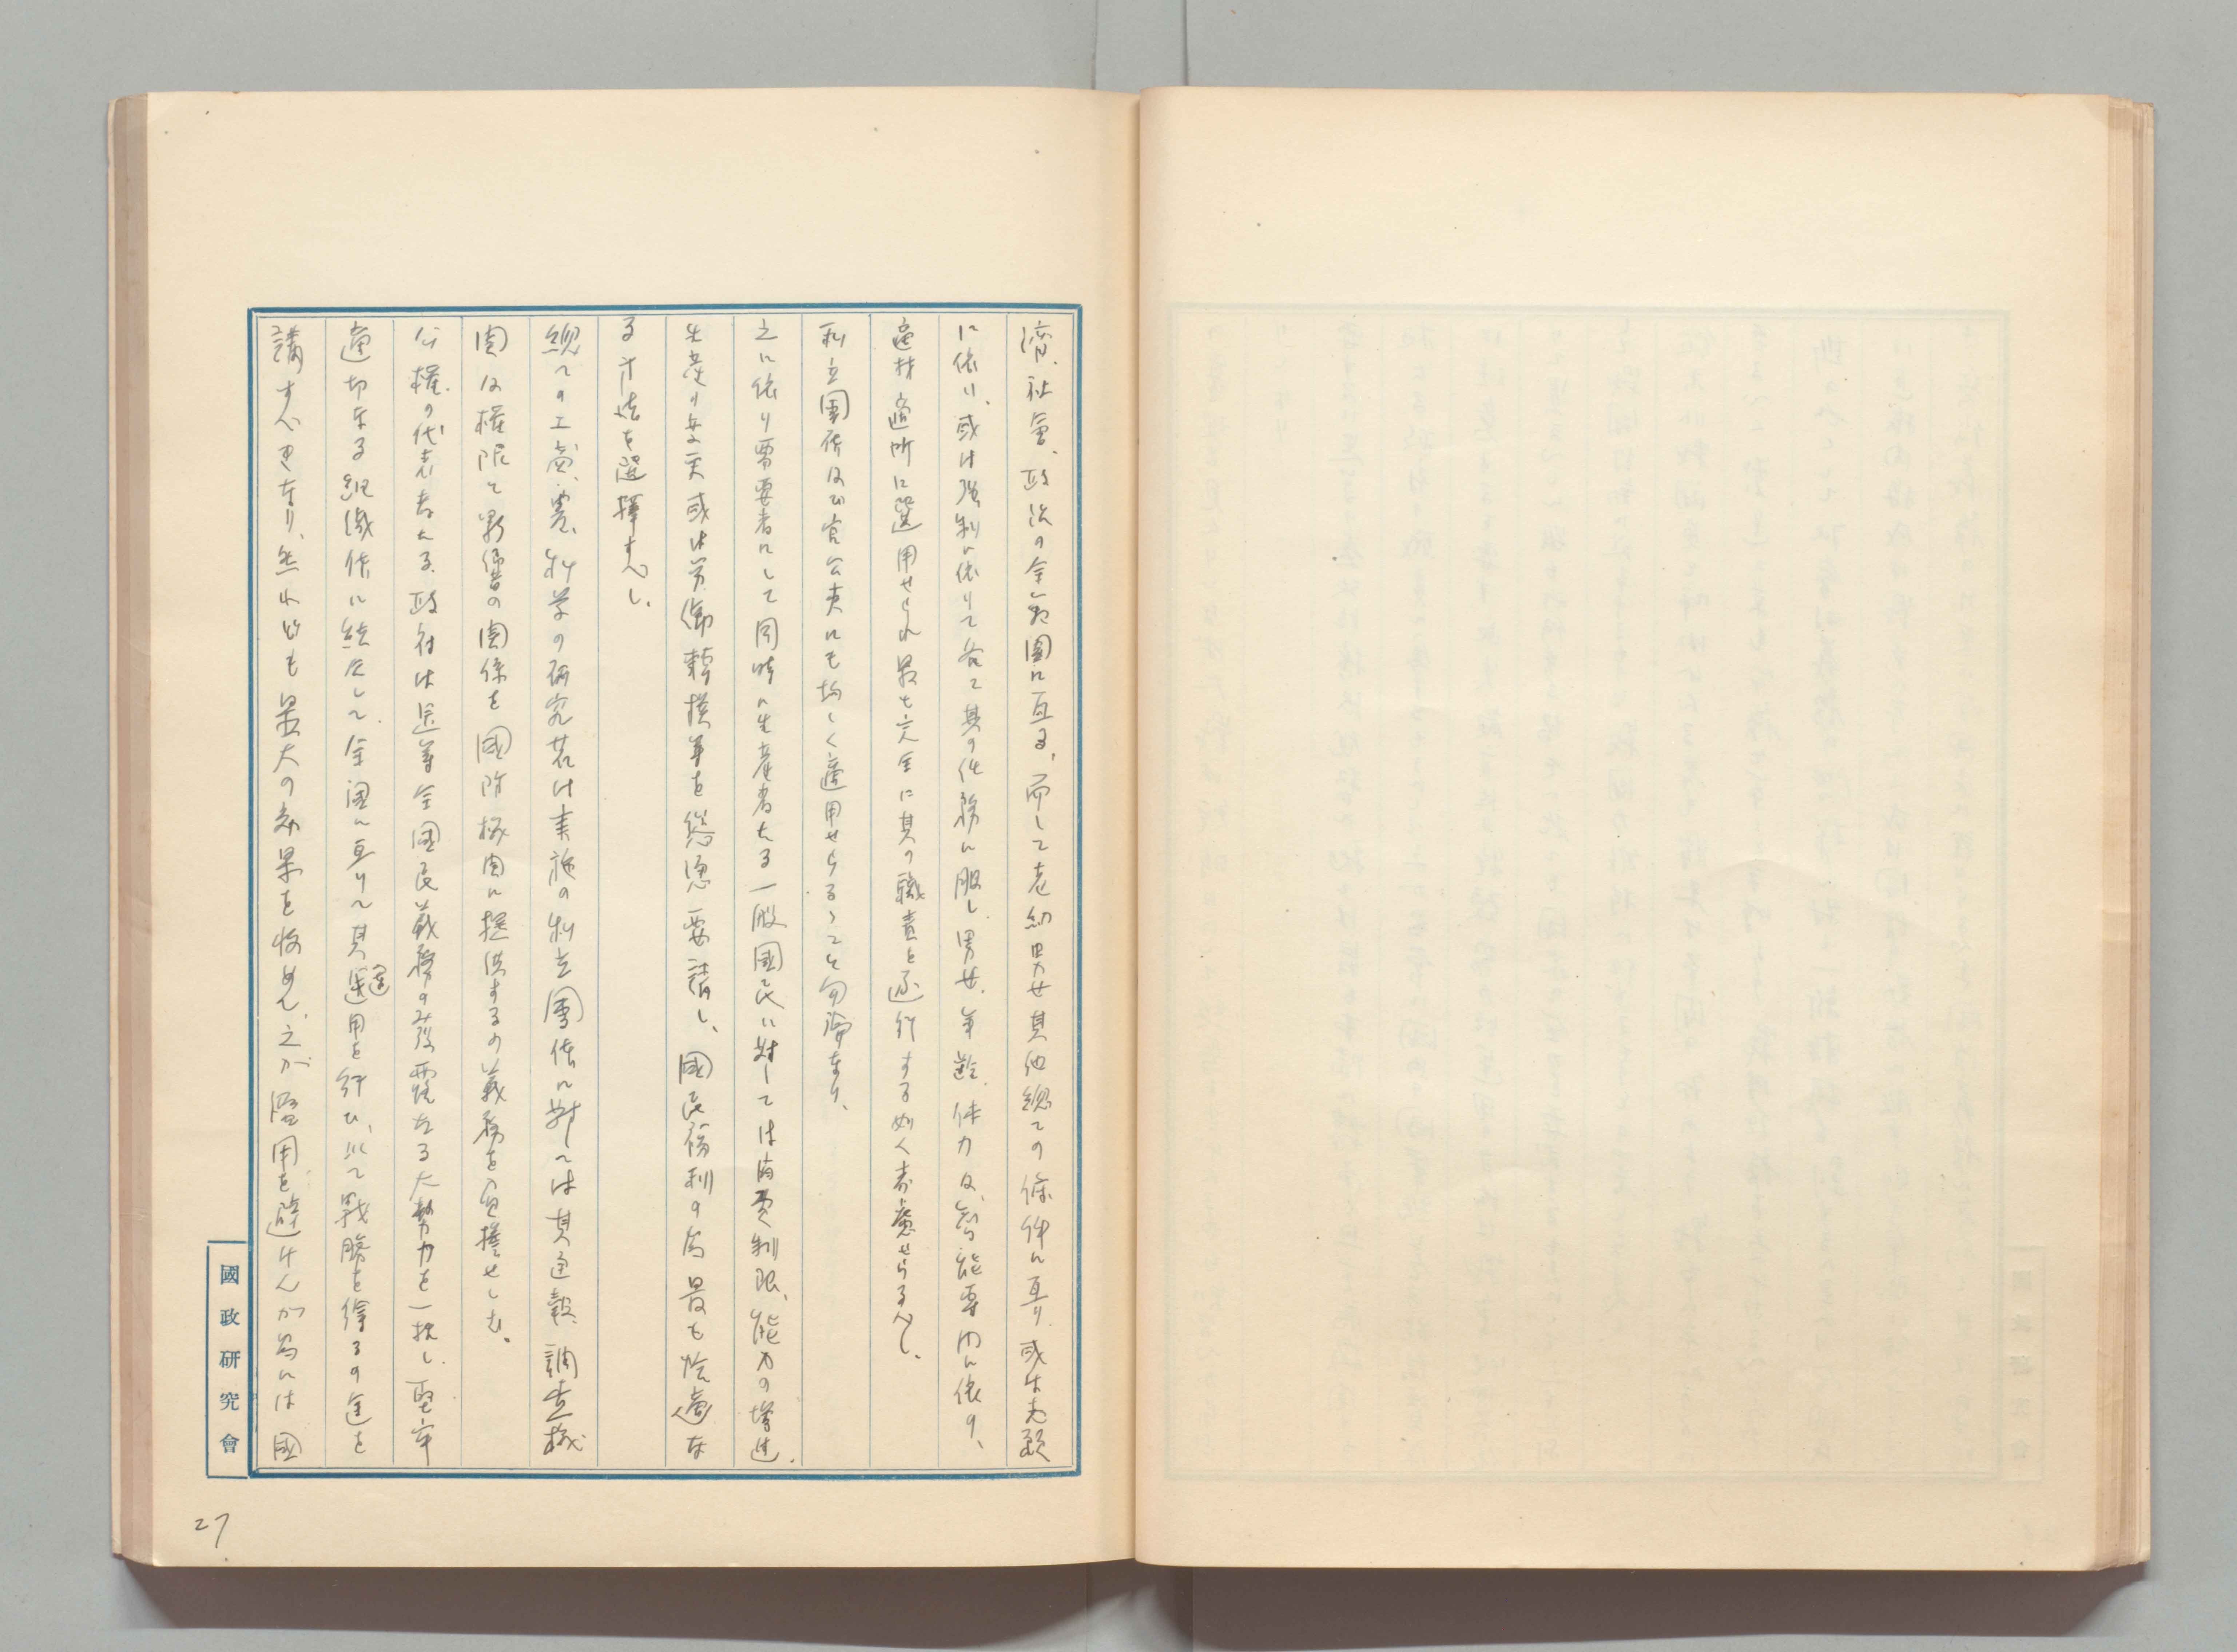 済、社會、政治の全範圍に亘る、而して老幼男女其他総ての條件に亘り、或は志願
に依り、或は強制に依りて各々其の任務に服し、男女、年齢、体力及、智能専門に依り、
適材適所に選用せられ最も完全に其の職責を遂行する如く考慮せらるべし、
私立團体及び官公吏にも均しく適用せらるゝこと勿論なり、
之に依り需要者にして同時に生産者たる一般國民に対しては消費制限、能力の増進、
生産の変更或は労働轉換等を慫慂要請し、國民福利の為最も恰適な
る方法を選擇すべし、
総ての工藝、業、科学の研究若は実施の私立團体に對しては其通報、調査機
関及権限と影響の関係を國防機関に提供するの義務を負擔せしむ。
公権の代表者たる政府は是等全國民義務の発露たる大勢力を一括し、堅牢
適切なる組織体に統合して、全国に亘りて其選用を行ひ、以て戦勝を得るの途を
講すべきなり、然れども最大の効果を収めん、之が濫用を避けんが為には國
國政研究會
27